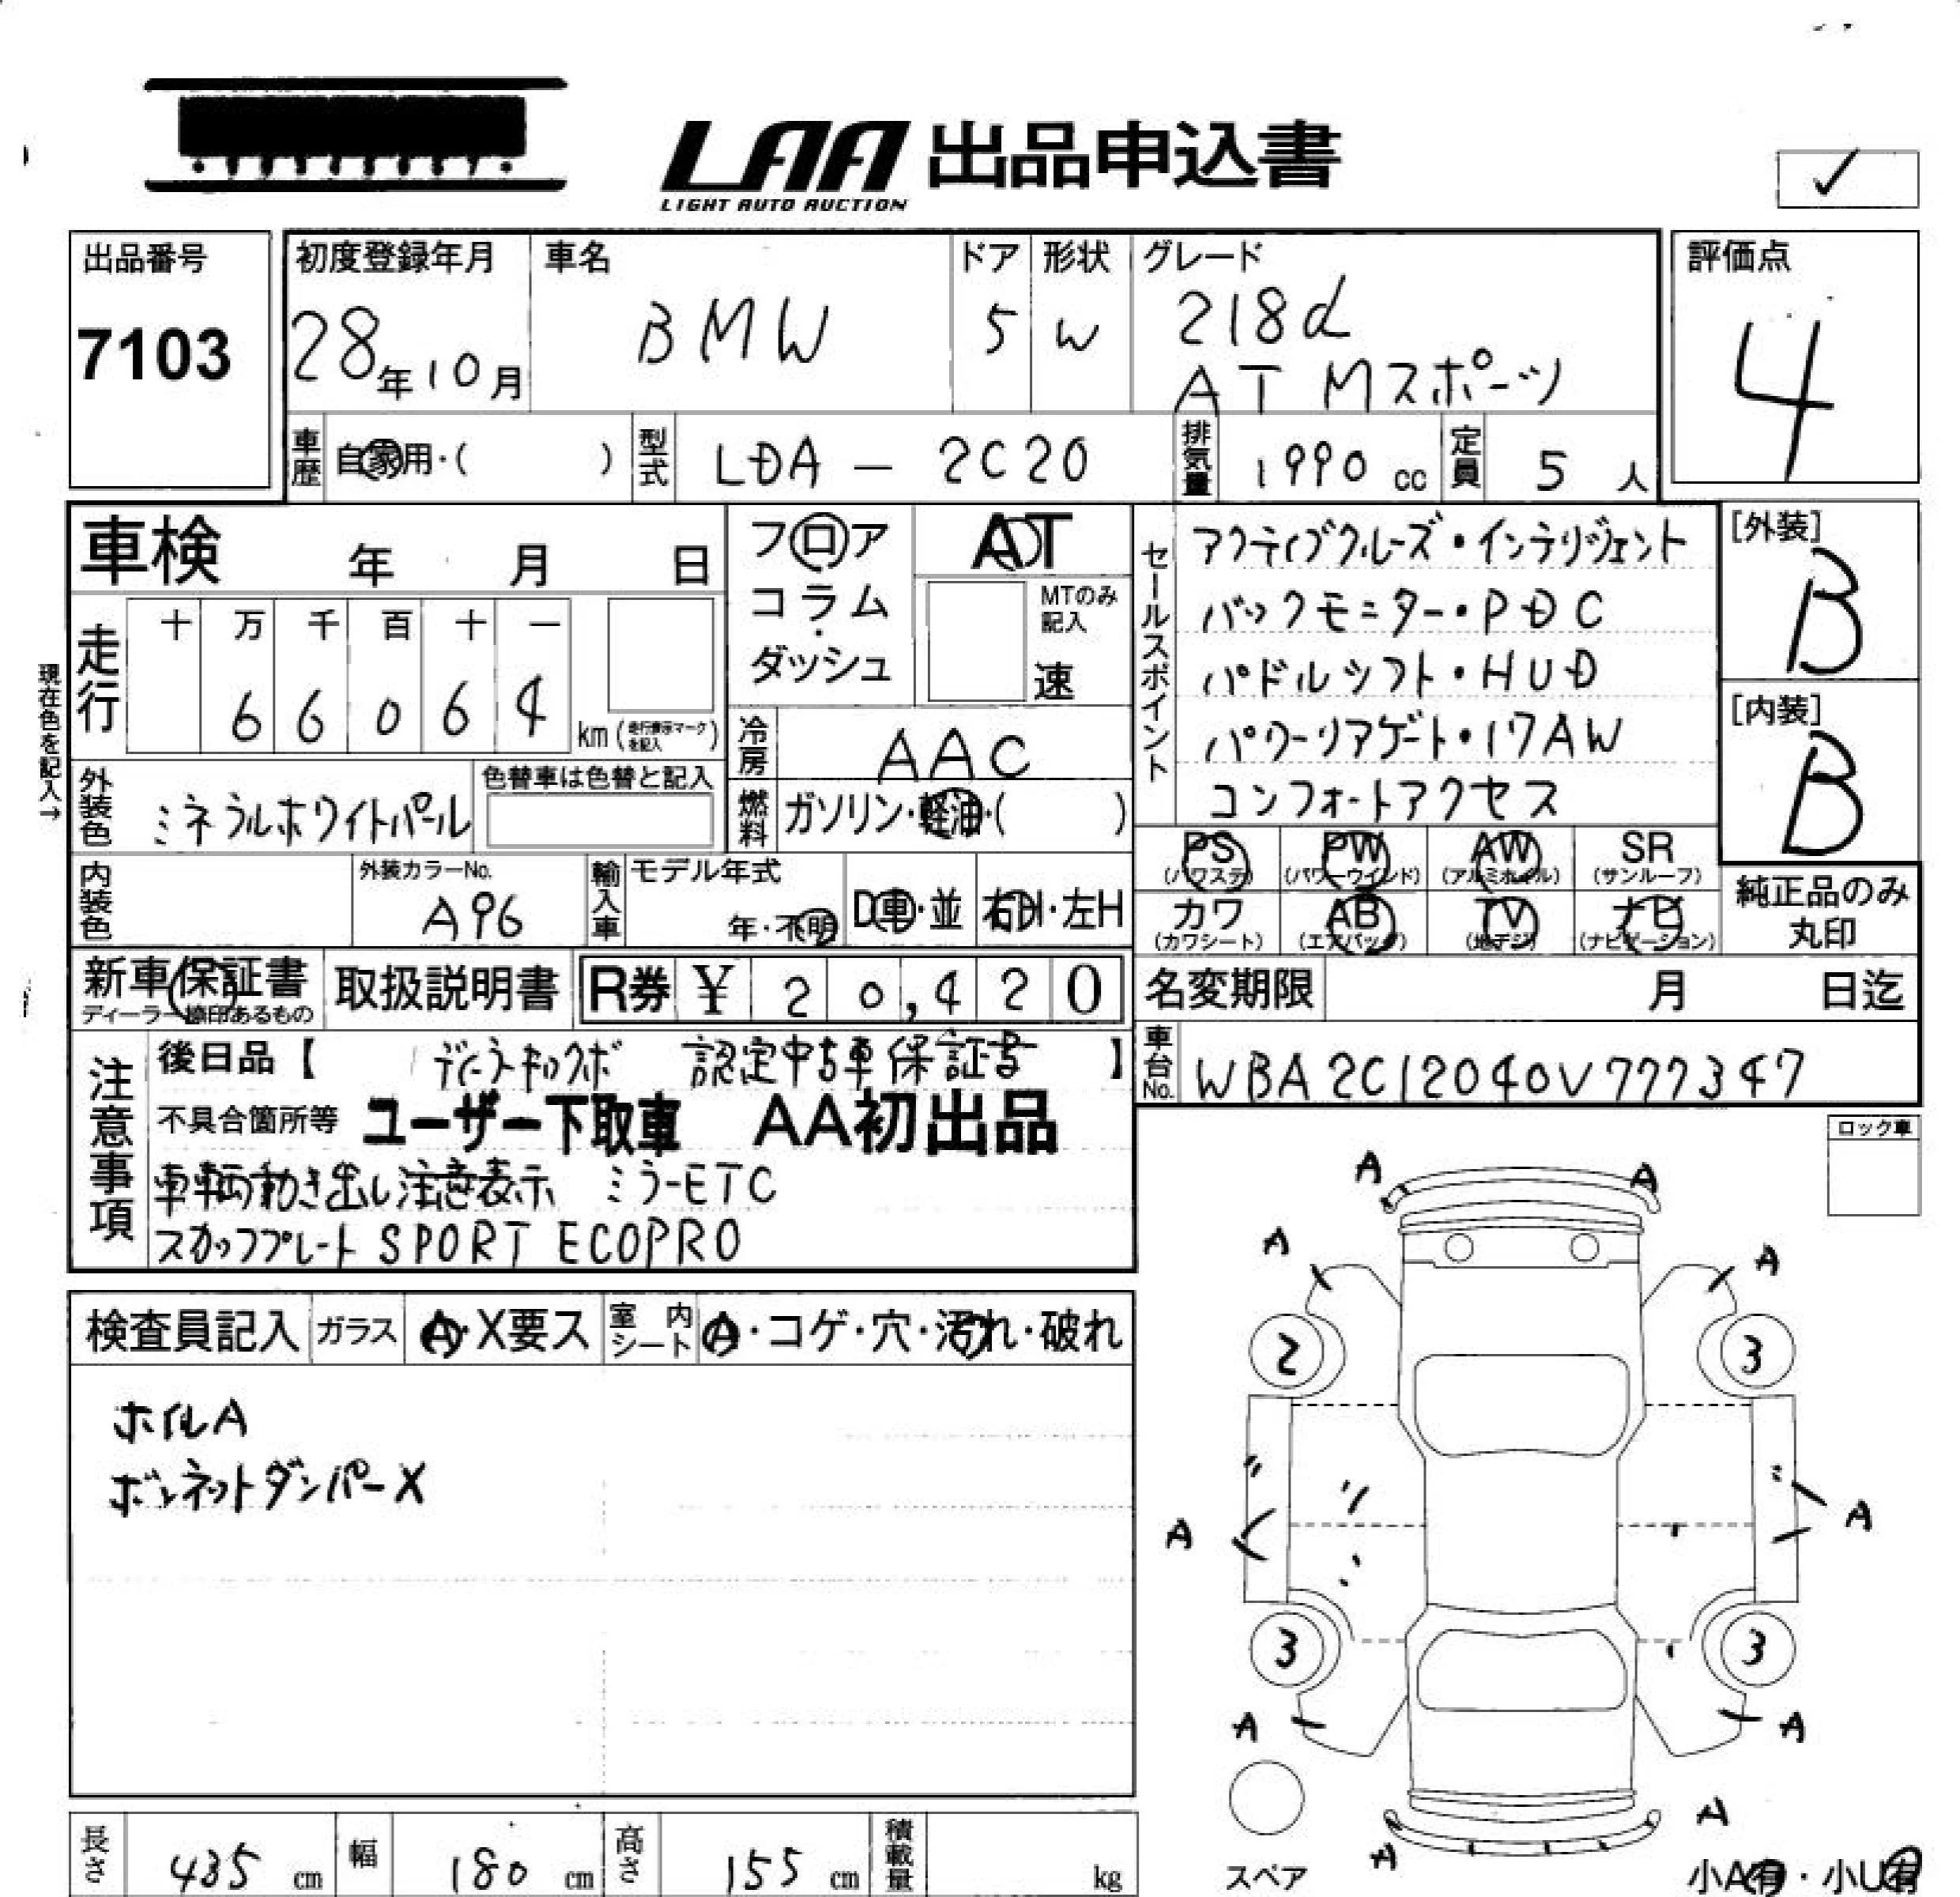 LAA 出品申込書
LIGHT AUTO AUCTION
✓
出品番号
7103
初度登録年月
28年10月
車名
BMW
ドア
5
形状
W
グレード
218d
AT Mスポーツ
評価点
4
車歴 自家用・( )
型式 LDA - 2C20
排気量 1990 cc
定員 5 人
車検 年 月 日
フロア・コラム・ダッシュ
AT
MTのみ記入
速
現在色を記入→
走行
十 万 千 百 十 一
6 6 0 6 4
km(走行表示マークを記入)
冷房 AAC
燃料 ガソリン・軽油・( )
外装色 ミネラルホワイトパール
色替車は色替と記入
内装色
外装カラーNo.
A96
輸入車
モデル年式
年・不明
D車・並
右H・左H
セールスポイント
アクティブクルーズ・インテリジェント
バックモニター・PDC
パドルシフト・HUD
パワーリアゲート・17AW
コンフォートアクセス
[外装]
B
[内装]
B
PS (パワステ)
PW (パワーウインド)
AW (アルミホイル)
SR (サンルーフ)
カワ (カワシート)
AB (エアバッグ)
TV (地デジ)
ナビ (ナビゲーション)
純正品のみ丸印
新車保証書
ディーラー捺印あるもの
取扱説明書
R券 ¥ 20,420
名変期限 月 日迄
車台No. WBA2C12040V777347
注意事項
後日品【 認定中古車保証書 】
不具合箇所等 ユーザー下取車 AA初出品
車輌動き出し注意表示 ミラーETC
スカッフプレート SPORT ECOPRO
検査員記入
ガラス A・X要ス
室内シート A・コゲ・穴・汚れ・破れ
ホイルA
ボンネットダンパーX
ロック車
A A
A A
2 3
A A
3 3
A A
A
A
スペア
小A有・小U有
長さ 435 cm
幅 180 cm
高さ 155 cm
積載量 kg